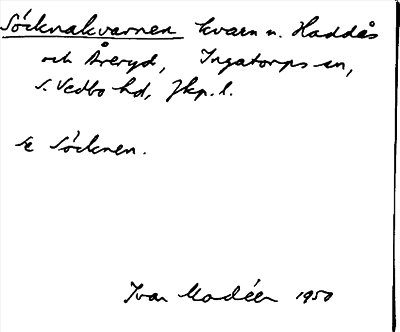 Söcknakvarnen kvarn u. Haddås
och Åreryd, Ingatorps sn,
S. Vedbo hd, Jkp. l.
Se Söcknen.
Ivar Modéer 1950